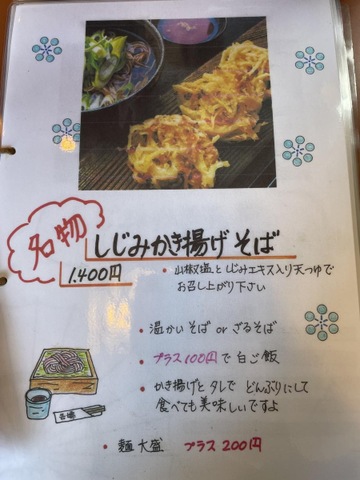 名物
しじみかき揚げそば
1.400円
• 山椒塩としじみエキス入り天つゆで
お召し上がり下さい
• 温かいそば or ざるそば
• プラス100円で白ご飯
• かき揚げとタレで どんぶりにして
食べても美味しいですよ
• 麺大盛 プラス200円